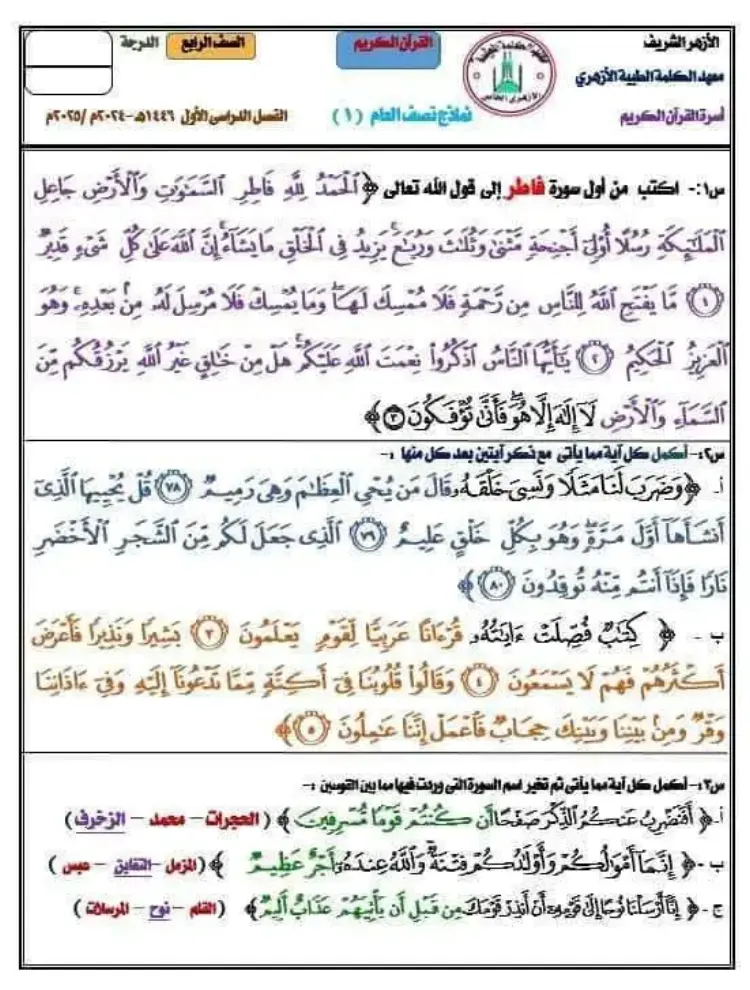 الأزهر الشريف
معهد الكلمة الطيبة الأزهري
أسرة القرآن الكريم
القرآن الكريم
نماذج نصف العام (١)
الصف الرابع
الدرجة
الفصل الدراسى الأول ١٤٤٦هـ-٢٠٢٤م /٢٠٢٥م
س١:- اكتب من أول سورة فاطر إلى قول الله تعالى ﴿ الْحَمْدُ لِلَّهِ فَاطِرِ السَّمَوَتِ وَالْأَرْضِ جَاعِلِ
الْمَلَئِكَةِ رُسُلًا أُوْلِي أَجْنِحَةٍ مَّثْنَى وَثُلَثَ وَرُبَعَ يَزِيدُ فِي الْخَلْقِ مَا يَشَاءُ إِنَّ اللَّهَ عَلَى كُلِّ شَيْءٍ قَدِيرٌ
(١) مَّا يَفْتَحِ اللَّهُ لِلنَّاسِ مِن رَّحْمَةٍ فَلَا مُمْسِكَ لَهَا وَمَا يُمْسِكْ فَلَا مُرْسِلَ لَهُ مِنْ بَعْدِهِ وَهُوَ
الْعَزِيزُ الْحَكِيمُ (٢) يَأَيُّهَا النَّاسُ اذْكُرُوا نِعْمَتَ اللَّهِ عَلَيْكُمْ هَلْ مِنْ خَلِقٍ غَيْرُ اللَّهِ يَرْزُقُكُم مِّنَ
السَّمَاءِ وَالْأَرْضِ لَا إِلَهَ إِلَّا هُوَ فَأَنَّى تُؤْفَكُونَ (٣) ﴾
س٢:- أكمل كل آية مما يأتى مع ذكر آيتين بعد كل منها :-
أ. ﴿ وَضَرَبَ لَنَا مَثَلًا وَنَسِيَ خَلْقَهُ قَالَ مَن يُحْيِ الْعِظَمَ وَهِيَ رَمِيمٌ (٧٨) قُلْ يُحْيِيهَا الَّذِي
أَنشَأَهَا أَوَّلَ مَرَّةٍ وَهُوَ بِكُلِّ خَلْقٍ عَلِيمٌ (٧٩) الَّذِي جَعَلَ لَكُم مِّنَ الشَّجَرِ الْأَخْضَرِ
نَارًا فَإِذَا أَنتُم مِّنْهُ تُوقِدُونَ (٨٠) ﴾
ب - ﴿ كِتَبٌ فُصِّلَتْ ءَايَتُهُ قُرْءَانًا عَرَبِيًّا لِّقَوْمٍ يَعْلَمُونَ (٣) بَشِيرًا وَنَذِيرًا فَأَعْرَضَ
أَكْثَرُهُمْ فَهُمْ لَا يَسْمَعُونَ (٤) وَقَالُوا قُلُوبُنَا فِي أَكِنَّةٍ مِّمَّا تَدْعُونَا إِلَيْهِ وَفِي ءَاذَانِنَا
وَقْرٌ وَمِنْ بَيْنِنَا وَبَيْنِكَ حِجَابٌ فَاعْمَلْ إِنَّنَا عَمِلُونَ (٥) ﴾
س٣:- أكمل كل آية مما يأتى ثم تخير اسم السورة التى وردت فيها مما بين القوسين :-
أ.﴿ أَفَنَضْرِبُ عَنكُمُ الذِّكْرَ صَفْحًا أَن كُنتُمْ قَوْمًا مُّسْرِفِينَ ﴾ ( الحجرات - محمد - الزخرف )
ب -﴿ إِنَّمَا أَمْوَلُكُمْ وَأَوْلَدُكُمْ فِتْنَةٌ وَاللَّهُ عِندَهُ أَجْرٌ عَظِيمٌ ﴾ ( المزمل -التغابن - عبس )
ج -﴿ إِنَّا أَرْسَلْنَا نُوحًا إِلَى قَوْمِهِ أَنْ أَنذِرْ قَوْمَكَ مِن قَبْلِ أَن يَأْتِيَهُمْ عَذَابٌ أَلِيمٌ ﴾ ( القلم - نوح - المرسلات )